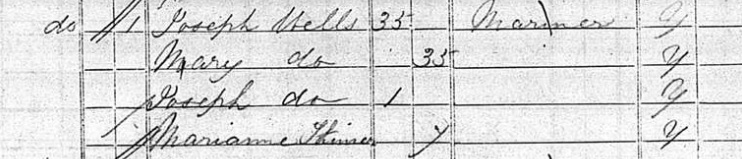 do 1 Joseph Wells 35 Mariner y
Mary do 35 y
Joseph do 1 y
Marianne y y